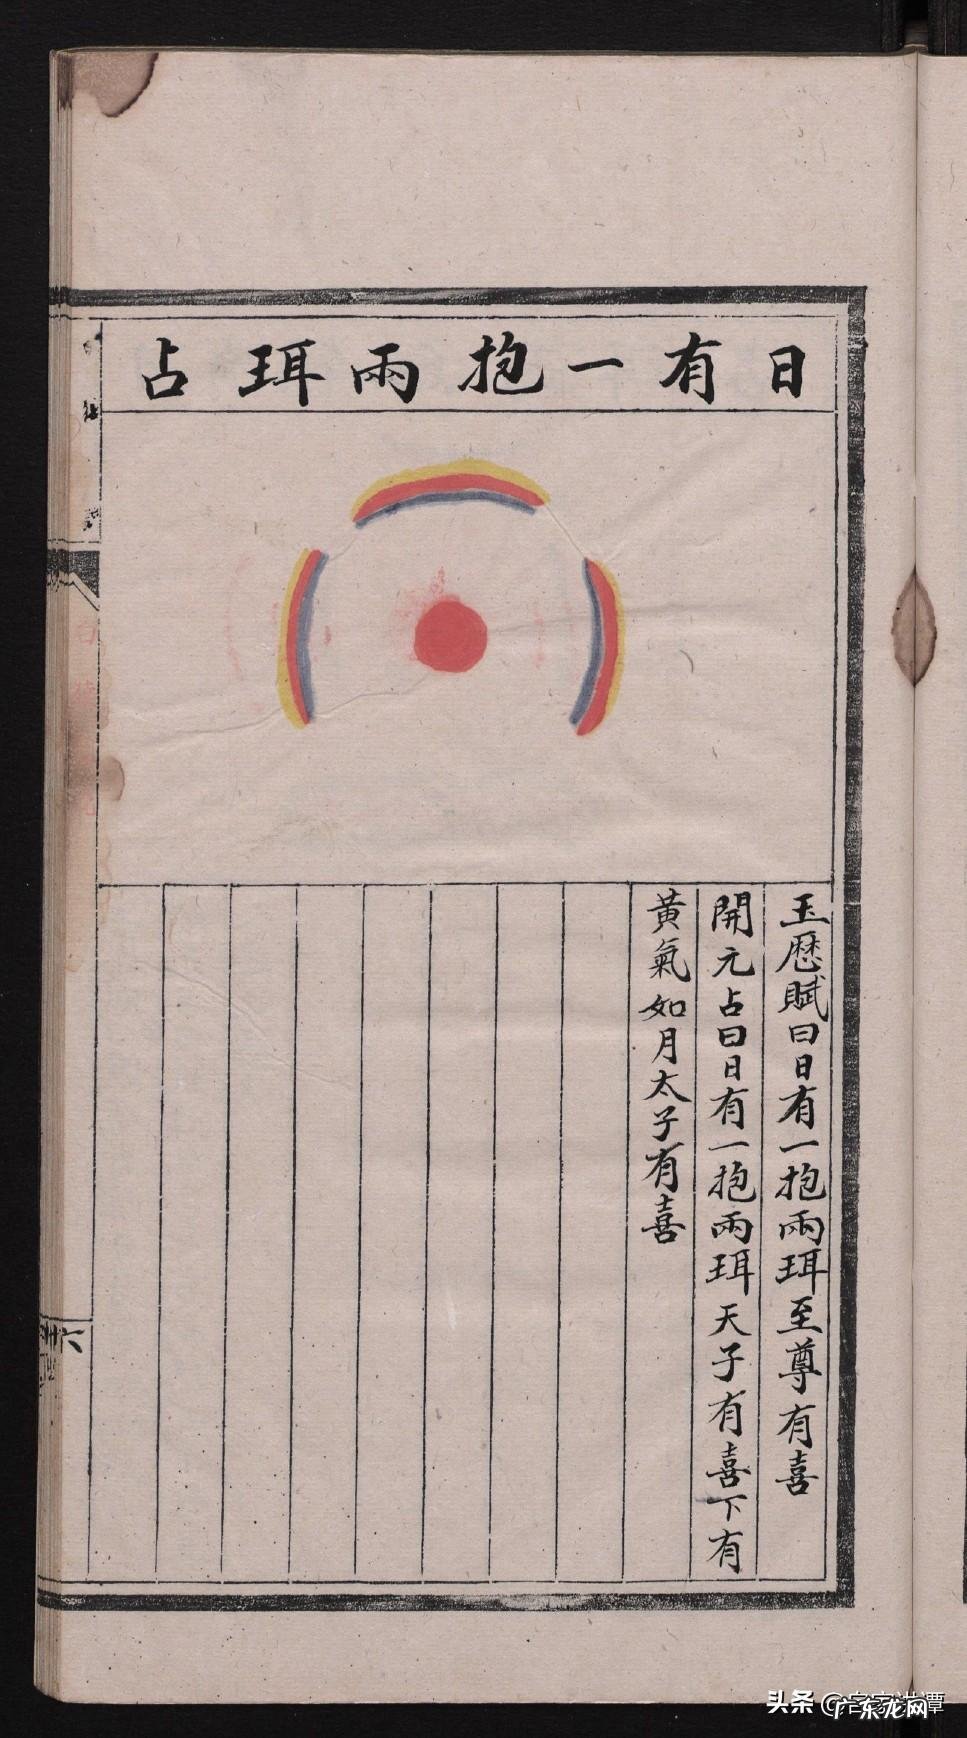 日有一抱兩珥占
玉厯賦曰日有一抱兩珥至尊有喜
開元占曰日有一抱兩珥天子有喜下有
黃氣如月太子有喜
六
头条
广东龙网